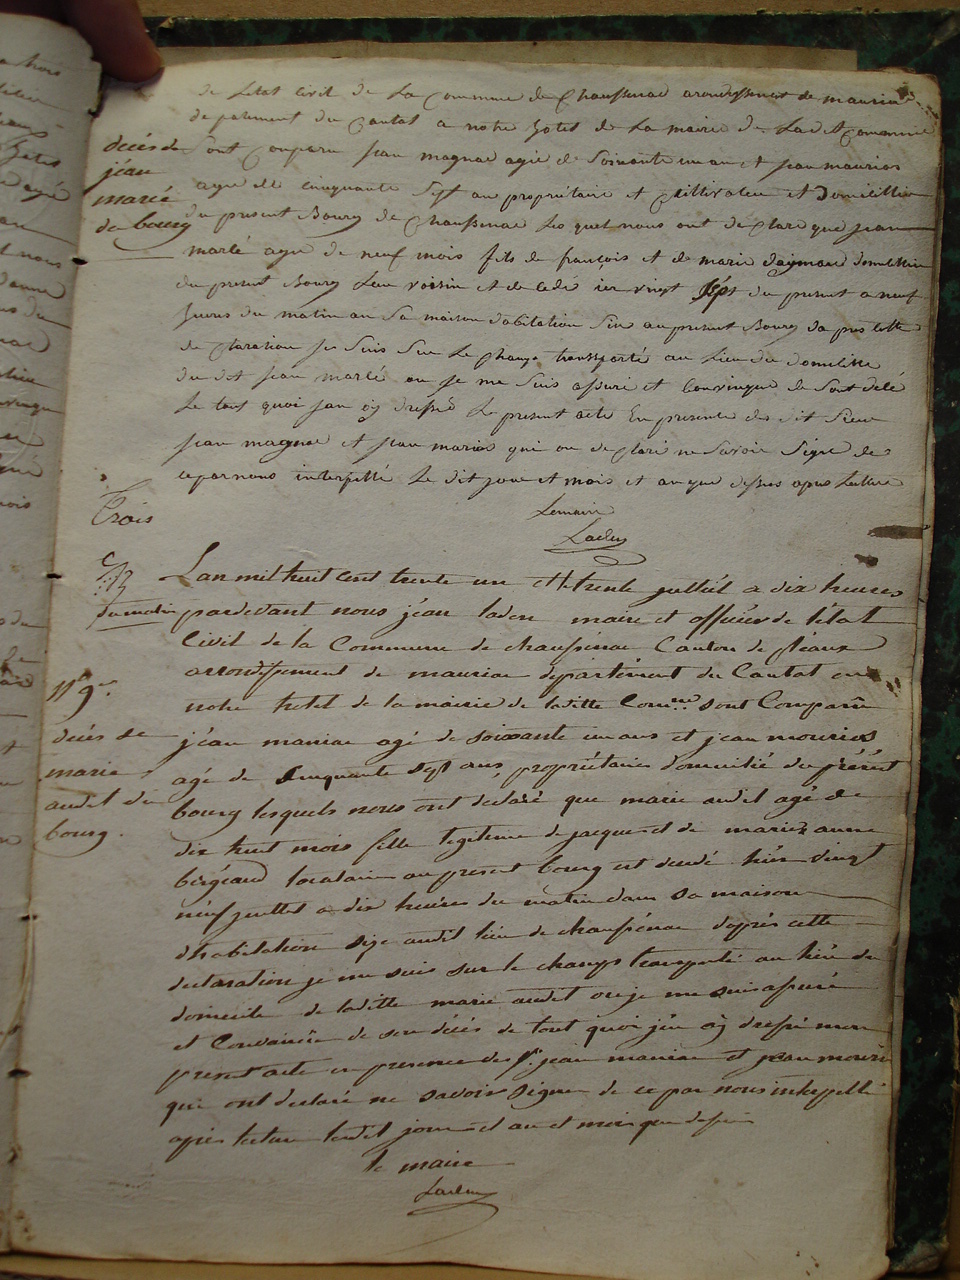 de Letat Civil de La Commune de Chaussenac arondissement de mauriac
departement du Cantal a notre hotel de La mairie de La dt Commune
décés de
jéan
marlé
du bourg
Sont Comparu Jean magnac agié de Soixante un an et Jean maurios
agie de Cinquante Sept an propriétaire et Cultivateur et Domicillie
du present Bourg de Chaussenac Les quel nous ont de Clare que Jean
marlé agie de neuf mois fils de françois et de marie daymard domicillié
du present Bourg Leur voisin et de cedé ier vingt Sept du present a neuf
heures du matin an Sa maison dabitation Sise au present Bourg da pres cette
de Claration Je Suis Sur Le Champ transporté au Lieu du domicille
du dit Jean marlé ou Je me Suis assuré et Convinque de Sont décé
Le tout quoi Jan ay dressé Le present acte En presence des dit Sieur
Jean magnac et Jean marios qui on de Claré ne Savoir Signe de
ce par nous interpellé Le dit jour et mois et an que dessus apres Lecture
Lemaire
Laden
Trois
du matin
Lan mil huit cent trente un et le trente juillét a dix heures
pardevant nous jéan laden maire et officiér de l'état
Civil de la Commune de chaussénac Canton de pléaux
arrondissement de mauriac département du Cantal en
notre hotel de la mairie de laditte Comne sont Comparu
décés de
marie
audit du
bourg.
jéan maniac agé de soixante un ans et jean mourios
agé de Cinquante sept ans, propriétaires domicilié du présent
bourg lesquels nous ont declaré que marie audit agé de
dix huit mois fille legitime de jacques et de marie anne
bergeaud locataire au present bourg est decedé hiér vingt
neuf juillet a dix heures du matin dans sa maison
d'habitation size audit lieu de chaussénac d'aprés cette
declaration je me suis sur le champ transporté au liéu du
domicile de laditte marie audit ou je me suis assuré
et Convaincu de son décés de tout quoi j'én ay dressé mon
present acte en presence des sr. jean maniac et jean mouri
qui ont declaré ne savoir signer de ce par nous interpellé
aprés lecture ledit jour et an et mois que dessus
le maire
Laden